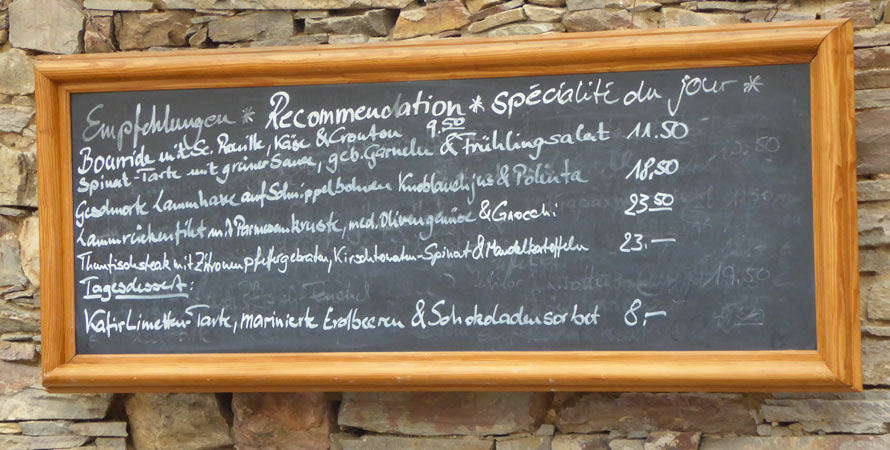 Empfehlungen * Recommendation * spécialité du jour *
Bourride mit Sc. Rouille, Käse & Crouton 9.50
Spinat-Tarte mit grüner Sauce, geb. Garnelen & Frühlingsalat 11.50
Geschmorte Lammhaxe auf Schnippelbohnen Knoblauchjus & Polenta 18,50
Lammrückenfilet mit Parmesankruste, med. Olivengemüse & Gnocchi 23.50
Thunfischsteak mit Zitronenpfeffer gebraten, Kirschtomaten-Spinat & Mandelkartoffeln 23.-
Tagesdessert:
Kafir Limetten-Tarte, marinierte Erdbeeren & Schokoladensorbet 8,-